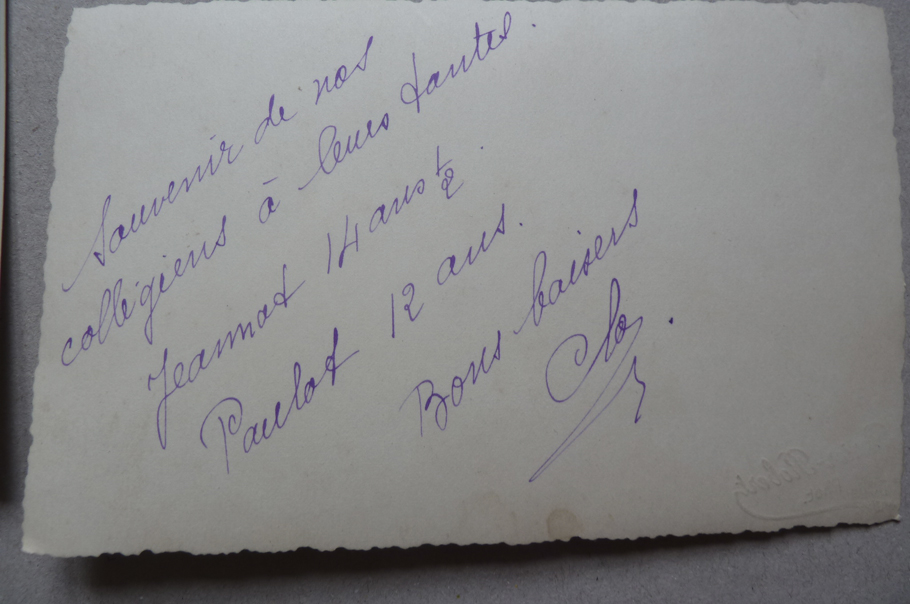 Souvenir de nos
collégiens à leurs tantes.
Jeannot 14 ans 1/2.
Paulot 12 ans.
Bons baisers
Clo.